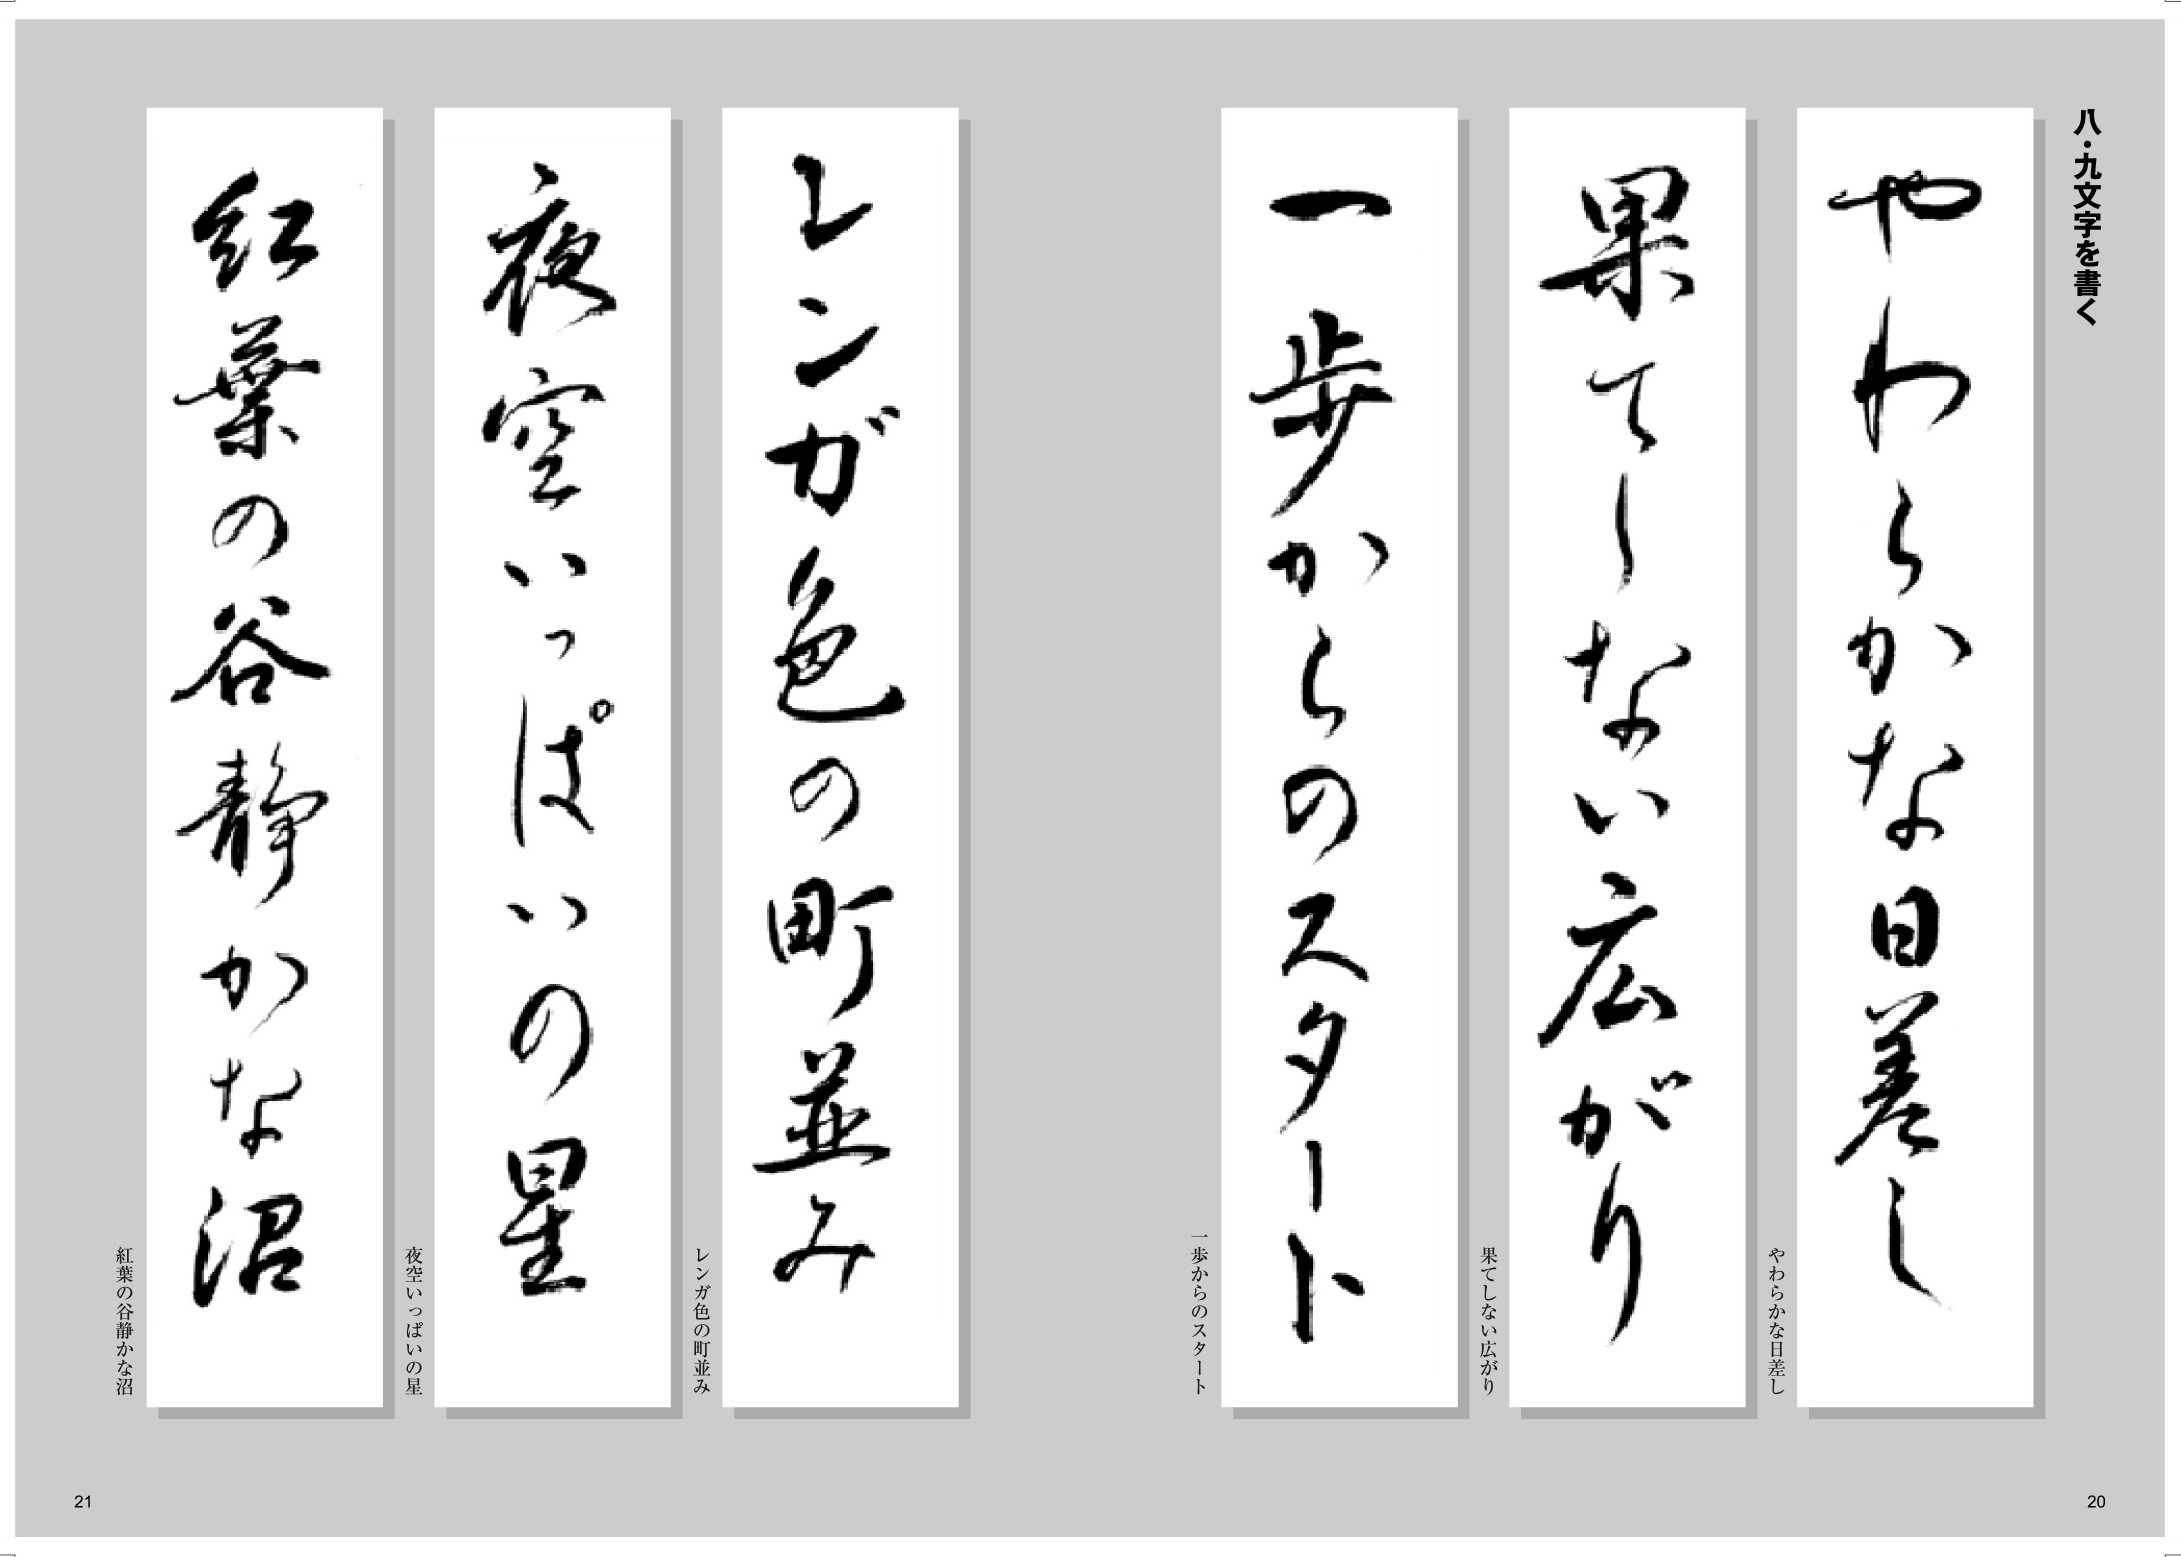 八・九文字を書く
やわらかな日差し
やわらかな日差し
果てしない広がり
果てしない広がり
一歩からのスタート
一歩からのスタート
20
レンガ色の町並み
レンガ色の町並み
夜空いっぱいの星
夜空いっぱいの星
紅葉の谷静かな沼
紅葉の谷静かな沼
21